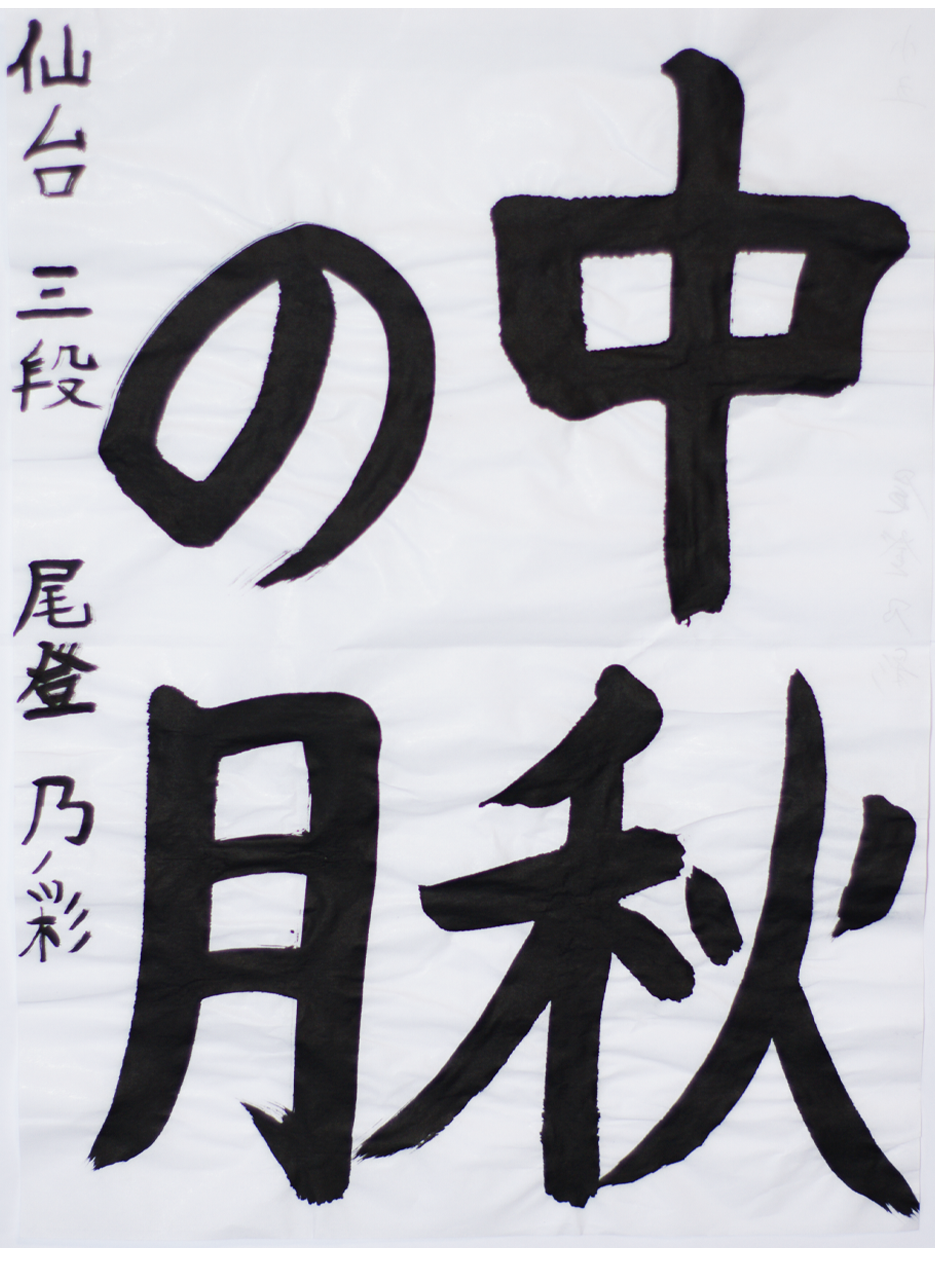 中秋
の月
仙台 三段 尾登 乃彩